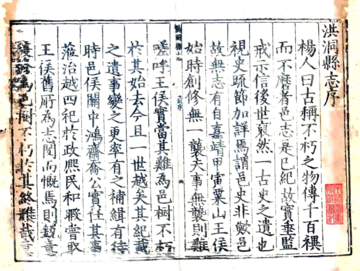 洪洞縣志序
楊人曰古稱不朽之物傳十百禩
而不磨者邑志是已紀故實垂監
戒示信後世裒然一古史之遺也
視史疏節加詳焉謂邑史非歟邑
故無志有自嘉靖甲寅棗山王侯
始時創修無一襲夫事無襲則難
嗟呼王侯實當其難為邑樹不朽
於其始去今且一世越矣其紀載
之遺事變之更率有之補緝有待
時邑侯關中鴻齋喬公實任其事
蒞治越四祀於政熙民和暇嘗取
王侯舊所為志閱而慨焉則銳意
為邑樹不朽於其終雖